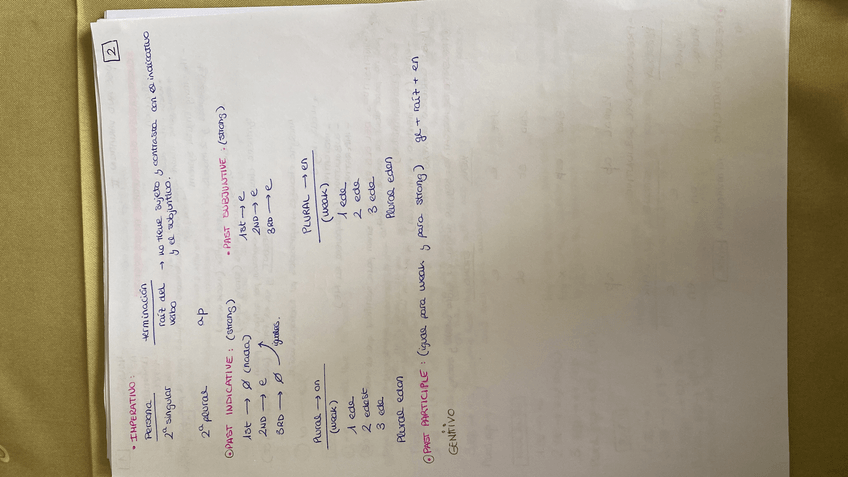 2
• IMPERATIVO:
Persona terminación
2ª singular raíz del verbo → no tiene sujeto y contrasta con el indicativo
y el subjuntivo.
2ª plural aþ
⊙ PAST INDICATIVE: (strong)
1st → ø (nada)
2ND → e
3RD → ø iguales.
Plural → on
(weak)
1 ede
2 edest
3 ede
Plural edon
• PAST SUBJUNTIVE: (strong)
1st → e
2ND → e
3RD → e
PLURAL → en
(weak)
1 ede
2 ede
3 ede
Plural eden
⊙ PAST PARTICIPLE: (igual para weak y para strong) ge + raíz + en
GENITIVO